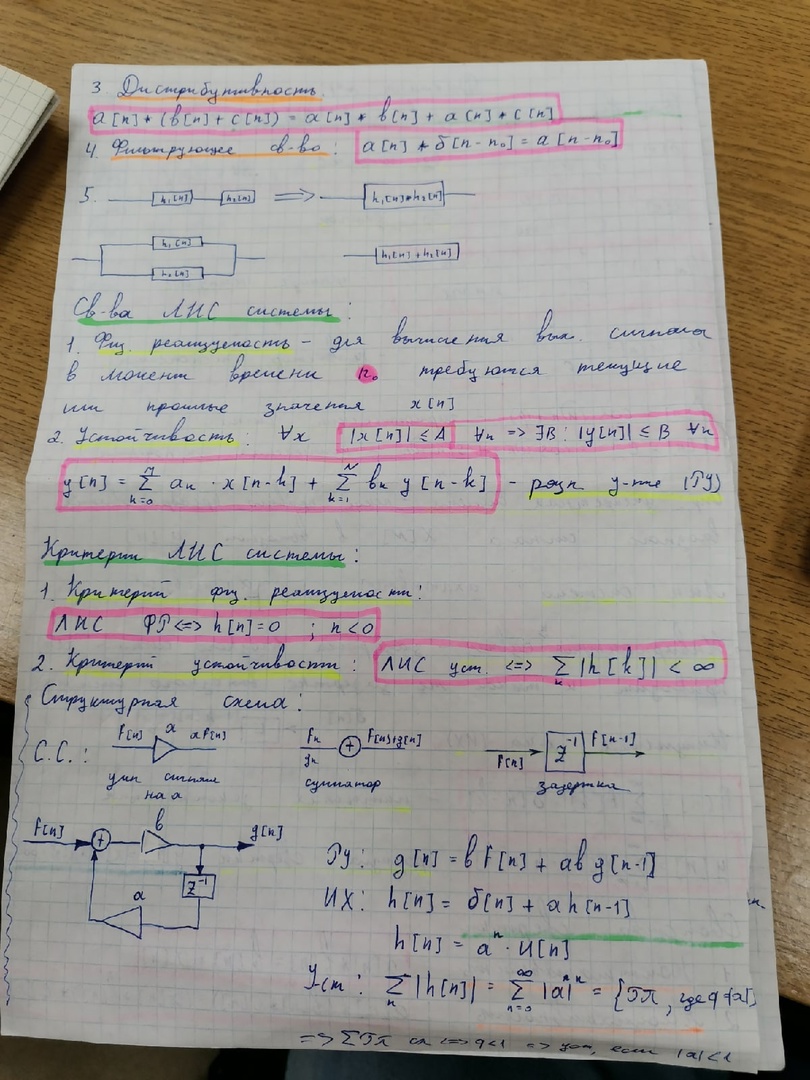 3. Дистрибутивность
a[n] * (b[n] + c[n]) = a[n] * b[n] + a[n] * c[n]
4. Фильтрующее св-во : a[n] * δ[n-n₀] = a[n-n₀]
5. h₁[n] h₂[n] => h₁[n]*h₂[n]
h₁[n]
h₂[n]
h₁[n]+h₂[n]
Св-ва ЛИС системы :
1. Физ. реализуемость – для вычисления вых. сигнала
в момент времени n₀ требуются текущие
или прошлые значения x[n]
2. Устойчивость : ∀x |x[n]| ≤ A ∀n => ∃B : |y[n]| ≤ B ∀n
y[n] = Σ_{k=0}^{M} aₖ · x[n-k] + Σ_{k=1}^{N} bₖ y[n-k] – разн ур-ие (РУ)
Критерии ЛИС системы :
1. Критерий физ. реализуемости :
ЛИС ФР <=> h[n]=0 ; n<0
2. Критерий устойчивости : ЛИС уст. <=> Σ_k |h[k]| < ∞
Структурная схема :
С.С. : f[n] α αf[n] fₙ gₙ + f[n]+g[n] f[n] Z⁻¹ f[n-1]
умн сигнала на α сумматор задержка
f[n] + b g[n]
Z⁻¹
a
РУ : g[n] = b f[n] + ab g[n-1]
ИХ : h[n] = δ[n] + a h[n-1]
h[n] = aⁿ · u[n]
Уст : Σ_n |h[n]| = Σ_{n=0}^{∞} |a|ⁿ = {ГП, где q
=> ΣГП <=> q<1 => уст, если |a|<1